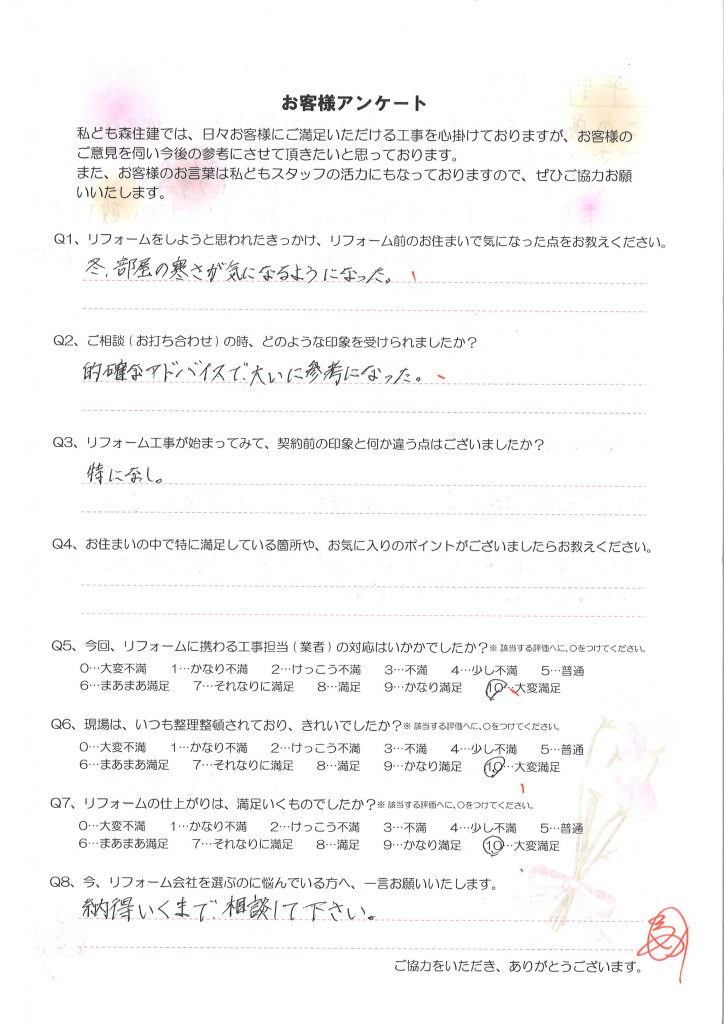 お客様アンケート
私ども森住建では、日々お客様にご満足いただける工事を心掛けておりますが、お客様の
ご意見を伺い今後の参考にさせて頂きたいと思っております。
また、お客様のお言葉は私どもスタッフの活力にもなっておりますので、ぜひご協力お願
いいたします。
Q1、リフォームをしようと思われたきっかけ、リフォーム前のお住まいで気になった点をお教えください。
冬、部屋の寒さが気になるようになった。
Q2、ご相談(お打ち合わせ)の時、どのような印象を受けられましたか?
的確なアドバイスで、大いに参考になった。
Q3、リフォーム工事が始まってみて、契約前の印象と何か違う点はございましたか?
特になし。
Q4、お住まいの中で特に満足している箇所や、お気に入りのポイントがございましたらお教えください。
Q5、今回、リフォームに携わる工事担当(業者)の対応はいかかでしたか?※該当する評価へに、〇をつけてください。
0…大変不満 1…かなり不満 2…けっこう不満 3…不満 4…少し不満 5…普通
6…まあまあ満足 7…それなりに満足 8…満足 9…かなり満足 10…大変満足
Q6、現場は、いつも整理整頓されており、きれいでしたか?※該当する評価へに、〇をつけてください。
0…大変不満 1…かなり不満 2…けっこう不満 3…不満 4…少し不満 5…普通
6…まあまあ満足 7…それなりに満足 8…満足 9…かなり満足 10…大変満足
Q7、リフォームの仕上がりは、満足いくものでしたか?※該当する評価へに、〇をつけてください。
0…大変不満 1…かなり不満 2…けっこう不満 3…不満 4…少し不満 5…普通
6…まあまあ満足 7…それなりに満足 8…満足 9…かなり満足 10…大変満足
Q8、今、リフォーム会社を選ぶのに悩んでいる方へ、一言お願いいたします。
納得いくまで、相談して下さい。
ご協力をいただき、ありがとうございます。